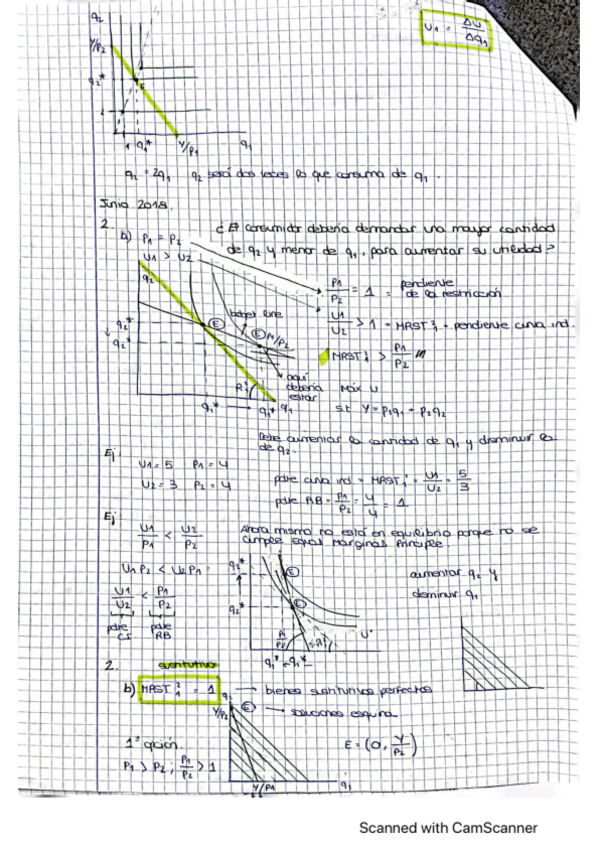 U1 = ΔU / Δq1
q2
Y/P2
q2*
1
1 q1* Y/P1 q1
q2 = 2q1 q2 será dos veces lo que consuma de q1.
Junio 2018.
2.
b) P1 = P2
U1 > U2
¿El consumidor debería demandar una mayor cantidad
de q2 y menor de q1, para aumentar su utilidad?
P1/P2 = 1 = pendiente de la restricción
U1/U2 > 1 = MRST = pendiente curva ind.
MRST > P1/P2
q2
budget line
E
E M/P2
q2*
q2*
aquí
debería
estar
Máx U
s.t Y = P1q1 + P2q2
q1* q1* q1
Debe aumentar la cantidad de q1 y disminuir la
de q2.
Ej
U1 = 5 P1 = 4
U2 = 3 P2 = 4
pdte curva ind = MRST = U1/U2 = 5/3
pdte RB = P1/P2 = 4/4 = 1
Ej
U1/P1 < U2/P2
Ahora mismo no está en equilibrio porque no se
cumple equal marginal principle.
U1P2 < U2P1
U1/U2 < P1/P2
pdte CI pdte RB
q2*
E
q2*
E
U*
q1* q1*
aumentar q2 y
disminuir q1
2. sustitutivo
b) MRST = 1 → bienes sustitutivos perfectos
→ soluciones esquina
q2
Y/P2
E
E = (0, Y/P2)
1ª opción.
P1 > P2 ; P1/P2 > 1
Y/P1 q1
Scanned with CamScanner